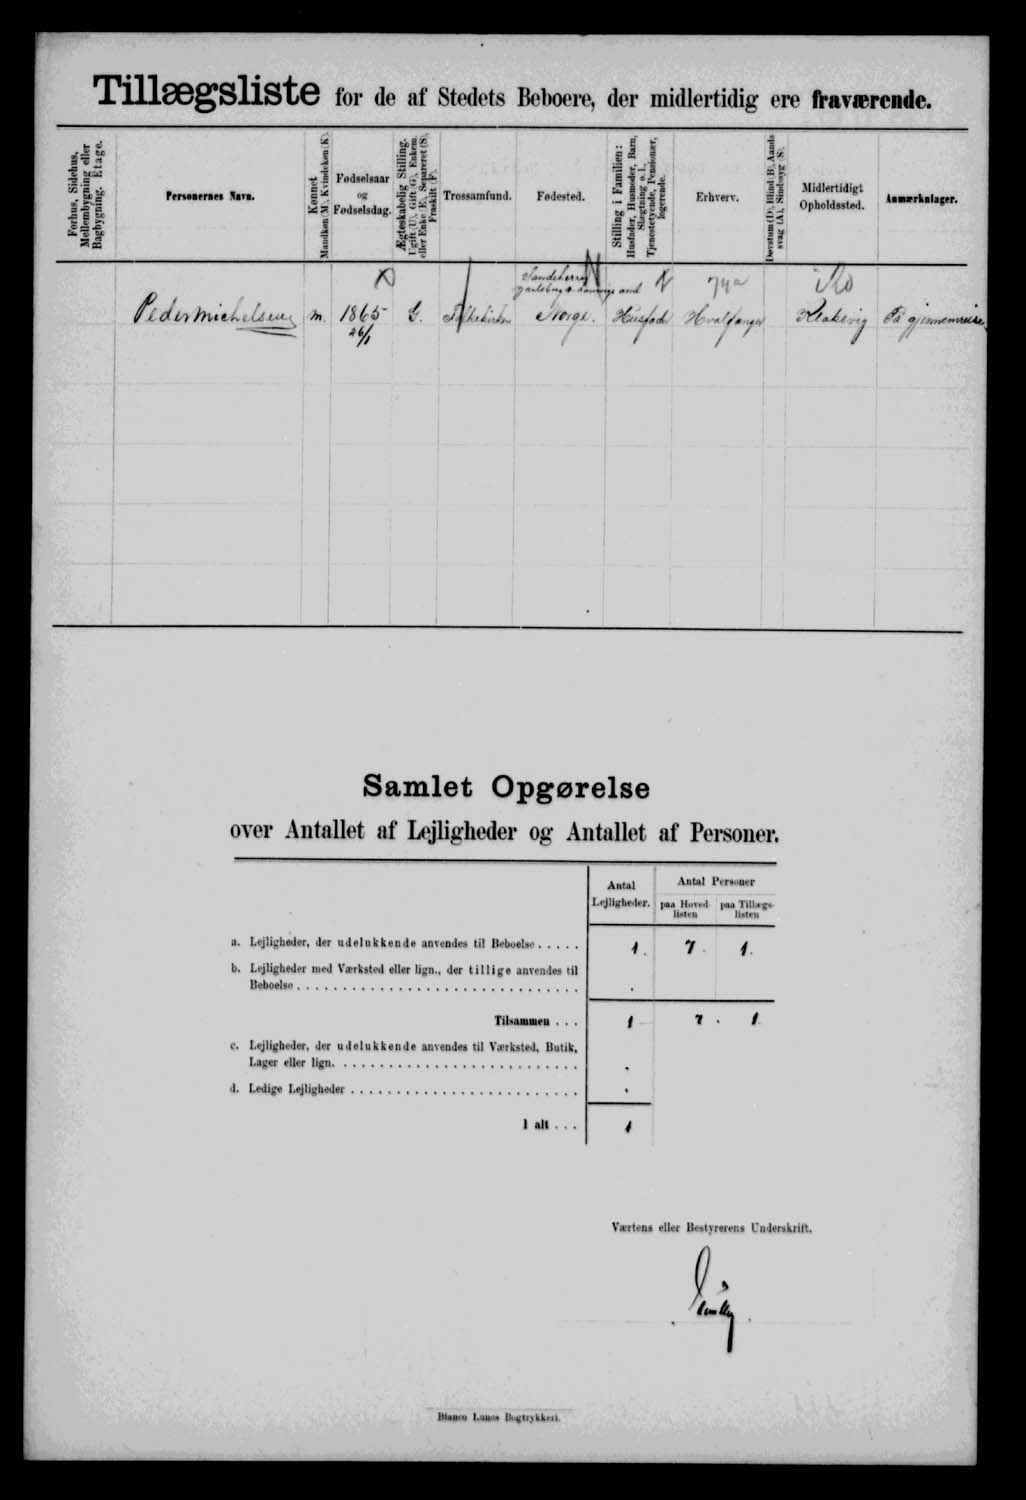 Tillægsliste for de af Stedets Beboere, der midlertidig ere fraværende.
Forhus, Sidehus, Mellembygning eller Bagbygning. Etage.
Personernes Navn.
Kønnet Mandkøn (M), Kvindekøn (K).
Fødselsaar og Fødselsdag.
Ægteskabelig Stilling. Ugift (U), Gift (G), Enkem. eller Enke (E), Separeret (S), Fraskilt (F).
Trossamfund.
Fødested.
Stilling i Familien: Husfader, Husmoder, Barn, Slægtning o. l., Tjenestetyende, Pensionær, logerende.
Erhverv.
Døvstum (D), Blind (B), Aands svag (A), Sindssyg (S).
Midlertidigt Opholdssted.
Anmærkninger.
Sandeherred
amt
Peder Michelsen m. 1865 G. Folkekirken Norge. Husfader Hvalfanger Klaksvig På gjennemreise
26/1
Samlet Opgørelse
over Antallet af Lejligheder og Antallet af Personer.
Antal Lejligheder.
Antal Personer
paa Hoved-listen
paa Tillægs-listen
a. Lejligheder, der udelukkende anvendes til Beboelse . . . . . 1. 7. 1.
b. Lejligheder med Værksted eller lign., der tillige anvendes til
Beboelse . . . . . . . . . . . . . . . . . . . . . . . . . . . . . .
Tilsammen . . . 1 7. 1.
c. Lejligheder, der udelukkende anvendes til Værksted, Butik,
Lager eller lign. . . . . . . . . . . . . . . . . . . . . . . . . . .
d. Ledige Lejligheder . . . . . . . . . . . . . . . . . . . . . . . .
I alt . . . 1
Værtens eller Bestyrerens Underskrift.
Bianco Lunos Bogtrykkeri.